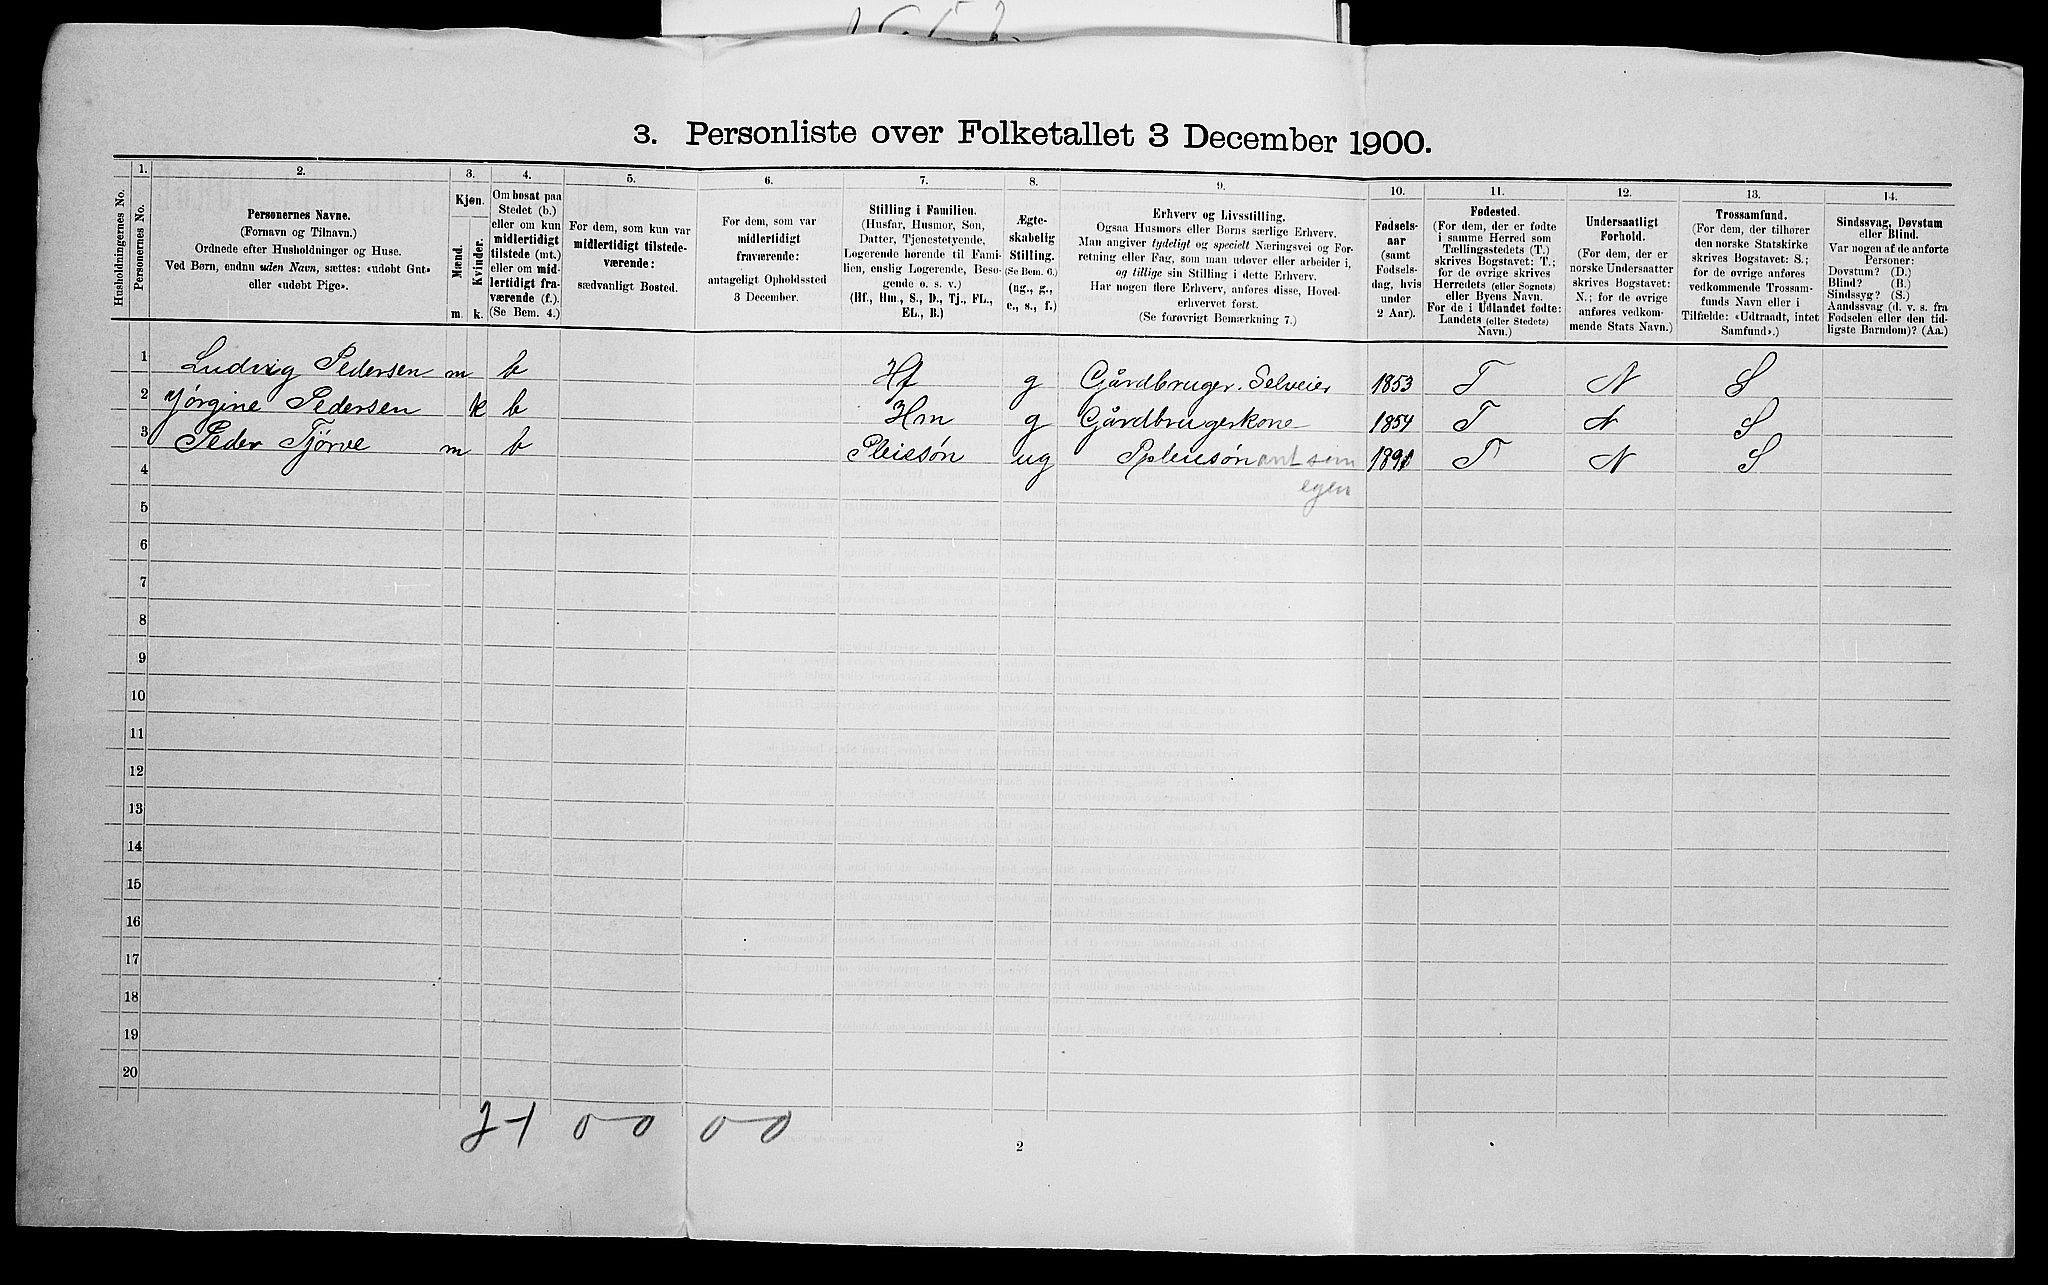 3. Personliste over Folketallet 3 December 1900.
Husholdningernes No.
1. Personernes No.
2. Personernes Navne.
(Fornavn og Tilnavn.)
Ordnede efter Husholdninger og Huse.
Ved Børn, endnu uden Navn, sættes: «udøbt Gut»
eller «udøbt Pige».
3. Kjøn.
Mænd. Kvinder.
m. k.
4. Om bosat paa
Stedet (b.)
eller om kun
midlertidigt
tilstede (mt.)
eller om mid-
lertidigt fra-
værende (f.).
(Se Bem. 4.)
5. For dem, som kun var
midlertidigt tilstede-
værende:
sædvanligt Bosted.
6. For dem, som var
midlertidigt
fraværende:
antageligt Opholdssted
3 December.
7. Stilling i Familien.
(Husfar, Husmor, Søn,
Datter, Tjenestetyende,
Logerende hørende til Fami-
lien, enslig Logerende, Besø-
gende o. s. v.)
(Hf., Hm., S., D., Tj., FL.,
EL., B.)
8. Ægte-
skabelig
Stilling.
(Se Bem. 6.)
(ug., g.,
e., s., f.)
9. Erhverv og Livsstilling.
Ogsaa Husmors eller Børns særlige Erhverv.
Man angiver tydeligt og specielt Næringsvei og For-
retning eller Fag, som man udøver eller arbeider i,
og tillige sin Stilling i dette Erhverv.
Har nogen flere Erhverv, anføres disse, Hoved-
erhvervet først.
(Se forøvrigt Bemærkning 7.)
10. Fødsels-
aar
(samt
Fødsels-
dag, hvis
under
2 Aar).
11. Fødested.
(For dem, der er fødte
i samme Herred som
Tællingsstedets (T.)
skrives Bogstavet: T.;
for de øvrige skrives
Herredets (eller Sognets)
eller Byens Navn.
For de i Udlandet fødte:
Landets (eller Stedets)
Navn.)
12. Undersaatligt
Forhold.
(For dem, der er
norske Undersaatter
skrives Bogstavet:
N.; for de øvrige
anføres vedkom-
mende Stats Navn.)
13. Trossamfund.
(For dem, der tilhører
den norske Statskirke
skrives Bogstavet: S.;
for de øvrige anføres
vedkommende Trossam-
funds Navn eller i
Tilfælde: «Udtraadt, intet
Samfund».)
14. Sindssvag, Døvstum
eller Blind.
Var nogen af de anførte
Personer:
Døvstum? (D.)
Blind? (B.)
Sindssyg? (S.)
Aandssvag (d. v. s. fra
Fødselen eller den tid-
ligste Barndom)? (Aa.)
1 Ludvig Pedersen m b Hf g Gårdbruger. Selveier 1853 T N S
2 Jørgine Pedersen k b Hm g Gårdbrugerkone 1854 T N S
3 Peder Tjørve m b Pleiesøn ug Pleiesøn ant som 1891 T N S
egen
4
5
6
7
8
9
10
11
12
13
14
15
16
17
18
19
20
0 0 0 0
2